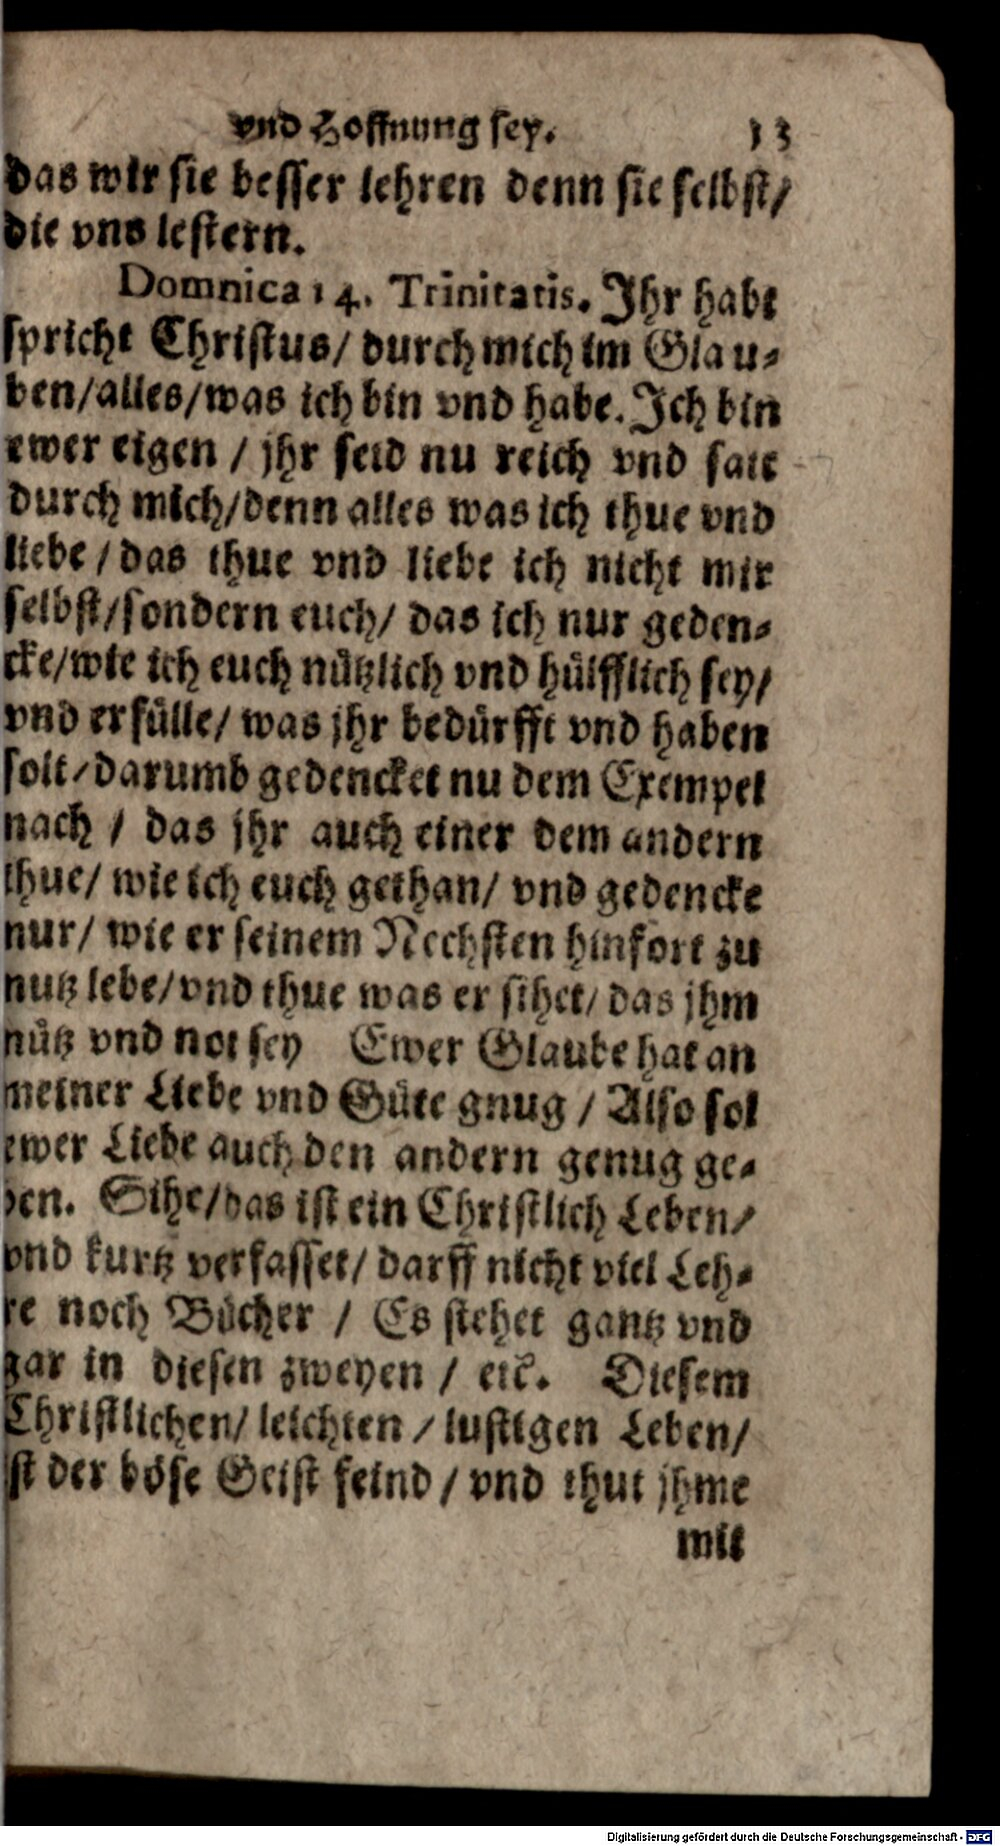 vnd Hoffnung sey. 13
das wir sie besser lehren denn sie selbst/
die vns lestern.
Domnica 14. Trinitatis. Jhr habt
spricht Christus/ durch mich im Glau-
ben/alles/was ich bin vnd habe. Jch bin
ewer eigen / jhr seid nu reich vnd satt
durch mich/denn alles was ich thue vnd
liebe / das thue vnd liebe ich nicht mir
selbst/sondern euch/ das ich nur geden-
cke/wie ich euch nützlich vnd hülfflich sey/
vnd erfülle/ was jhr bedürfft vnd haben
solt/darumb gedencket nu dem Exempel
nach / das jhr auch einer dem andern
thue/ wie ich euch gethan/ vnd gedencke
nur/ wie er seinem Nechsten hinfort zu
nutz lebe/vnd thue was er sihet/ das jhm
nütz vnd not sey Ewer Glaube hat an
meiner Liebe vnd Güte gnug / Also sol
ewer Liebe auch den andern genug ge-
ben. Sihe/das ist ein Christlich Leben/
vnd kurtz verfasset/ darff nicht viel Leh-
re noch Bücher / Es stehet gantz vnd
gar in diesen zweyen / etc. Diesem
Christlichen/ leichten / lustigen Leben/
ist der böse Geist feind / vnd thut jhme
mit
Digitalisierung gefördert durch die Deutsche Forschungsgemeinschaft - DFG